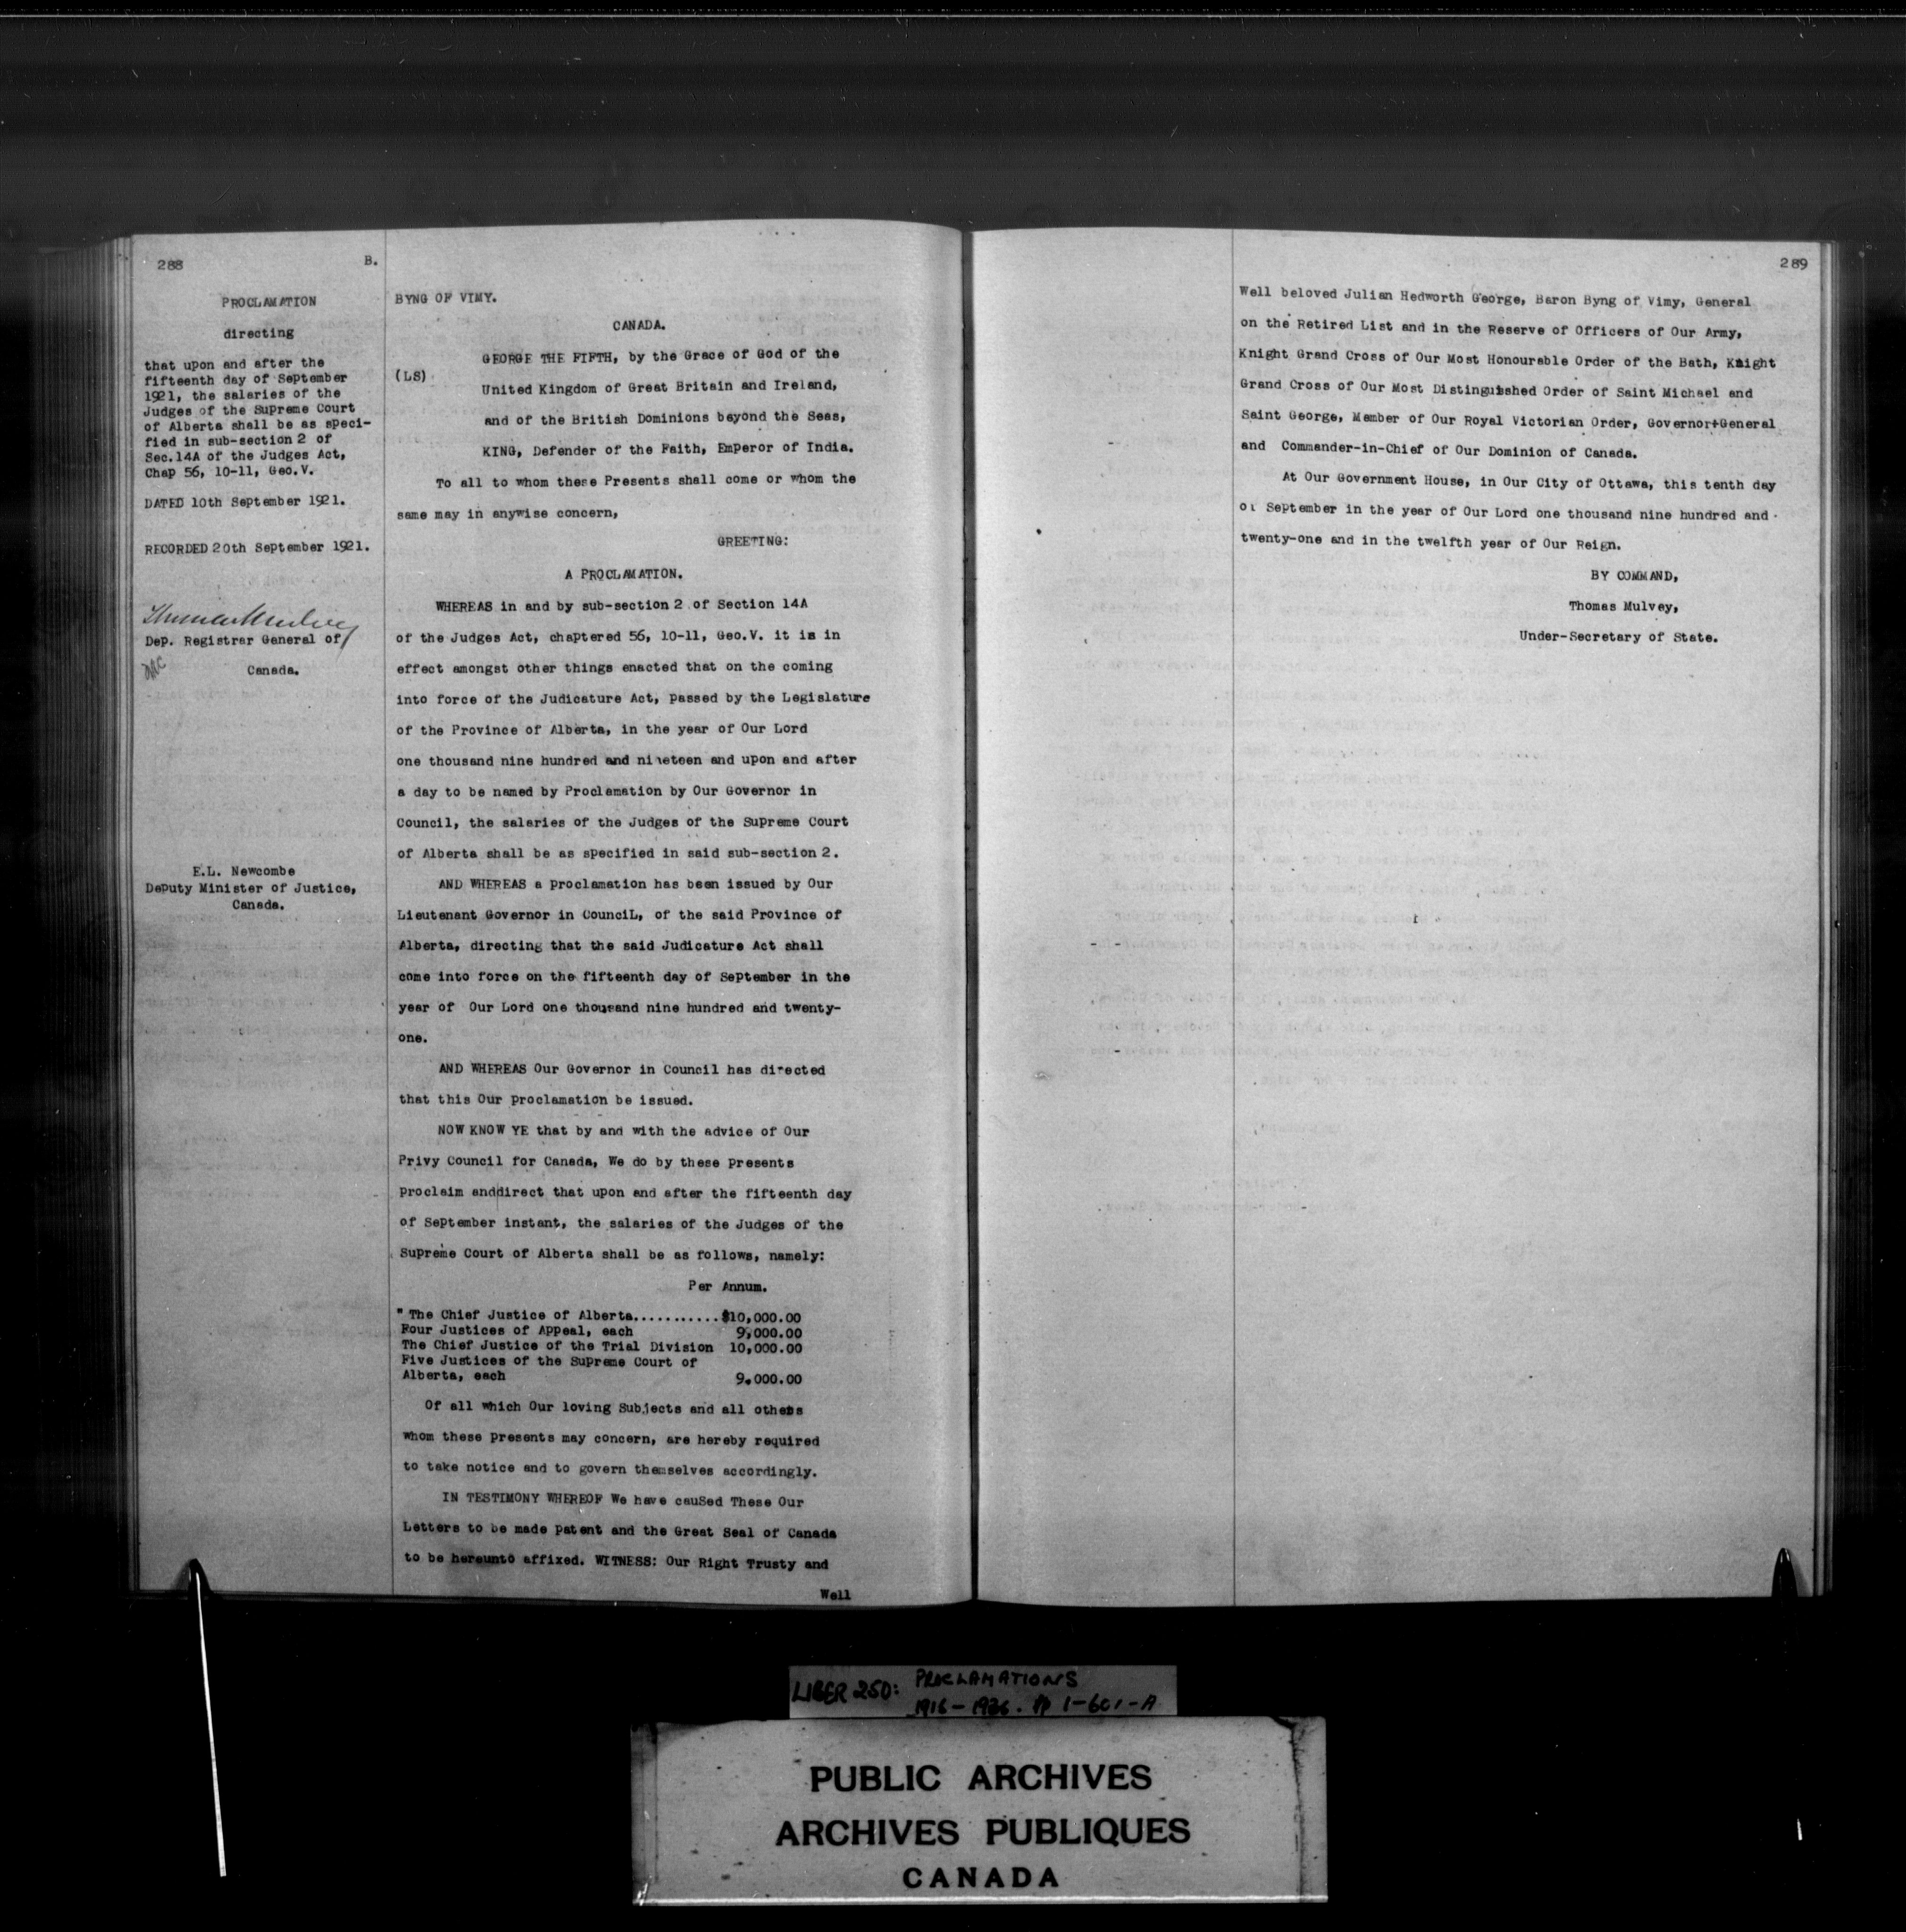 288
B.
PROCLAMATION
directing
that upon and after the
fifteenth day of September
1921, the salaries of the
Judges of the Supreme Court
of Alberta shall be as speci-
fied in sub-section 2 of
Sec.14A of the Judges Act,
Chap 56, 10-11, Geo.V.
DATED 10th September 1921.
RECORDED 20th September 1921.
Thomas Mulvey
Dep. Registrar General of
Canada.
E.L. Newcombe
Deputy Minister of Justice,
Canada.
BYNG OF VIMY.
CANADA.
GEORGE THE FIFTH, by the Grace of God of the
(LS)
United Kingdom of Great Britain and Ireland,
and of the British Dominions beyond the Seas,
KING, Defender of the Faith, Emperor of India.
To all to whom these Presents shall come or whom the
same may in anywise concern,
GREETING:
A PROCLAMATION.
WHEREAS in and by sub-section 2 of Section 14A
of the Judges Act, chaptered 56, 10-11, Geo.V. it is in
effect amongst other things enacted that on the coming
into force of the Judicature Act, passed by the Legislature
of the Province of Alberta, in the year of Our Lord
one thousand nine hundred and nineteen and upon and after
a day to be named by Proclamation by Our Governor in
Council, the salaries of the Judges of the Supreme Court
of Alberta shall be as specified in said sub-section 2.
AND WHEREAS a proclamation has been issued by Our
Lieutenant Governor in CounciL, of the said Province of
Alberta, directing that the said Judicature Act shall
come into force on the fifteenth day of September in the
year of Our Lord one thousand nine hundred and twenty-
one.
AND WHEREAS Our Governor in Council has directed
that this Our proclamation be issued.
NOW KNOW YE that by and with the advice of Our
Privy Council for Canada, We do by these presents
proclaim anddirect that upon and after the fifteenth day
of September instant, the salaries of the Judges of the
Supreme Court of Alberta shall be as follows, namely:
Per Annum.
" The Chief Justice of Alberta...........$10,000.00
Four Justices of Appeal, each 9,000.00
The Chief Justice of the Trial Division 10,000.00
Five Justices of the Supreme Court of
Alberta, each 9.000.00
Of all which Our loving Subjects and all others
whom these presents may concern, are hereby required
to take notice and to govern themselves accordingly.
IN TESTIMONY WHEREOF We have cauSed These Our
Letters to be made patent and the Great Seal of Canada
to be hereunto affixed. WITNESS: Our Right Trusty and
Well
289
Well beloved Julian Hedworth George, Baron Byng of Vimy, General
on the Retired List and in the Reserve of Officers of Our Army,
Knight Grand Cross of Our Most Honourable Order of the Bath, Knight
Grand Cross of Our Most Distinguished Order of Saint Michael and
Saint George, Member of Our Royal Victorian Order, Governor+General
and Commander-in-Chief of Our Dominion of Canada.
At Our Government House, in Our City of Ottawa, this tenth day
of September in the year of Our Lord one thousand nine hundred and
twenty-one and in the twelfth year of Our Reign.
BY COMMAND,
Thomas Mulvey,
Under-Secretary of State.
LIBER 250: PROCLAMATIONS
1916-1926. pp 1-601-A
PUBLIC ARCHIVES
ARCHIVES PUBLIQUES
CANADA